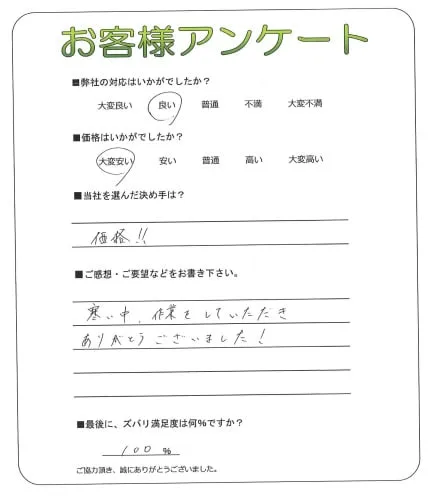 お客様アンケート
■弊社の対応はいかがでしたか？
大変良い 良い 普通 不満 大変不満
■価格はいかがでしたか？
大変安い 安い 普通 高い 大変高い
■当社を選んだ決め手は？
価格!!
■ご感想・ご要望などをお書き下さい。
寒い中、作業をしていただき
ありがとうございました！
■最後に、ズバリ満足度は何％ですか？
100 ％
ご協力頂き、誠にありがとうございました。